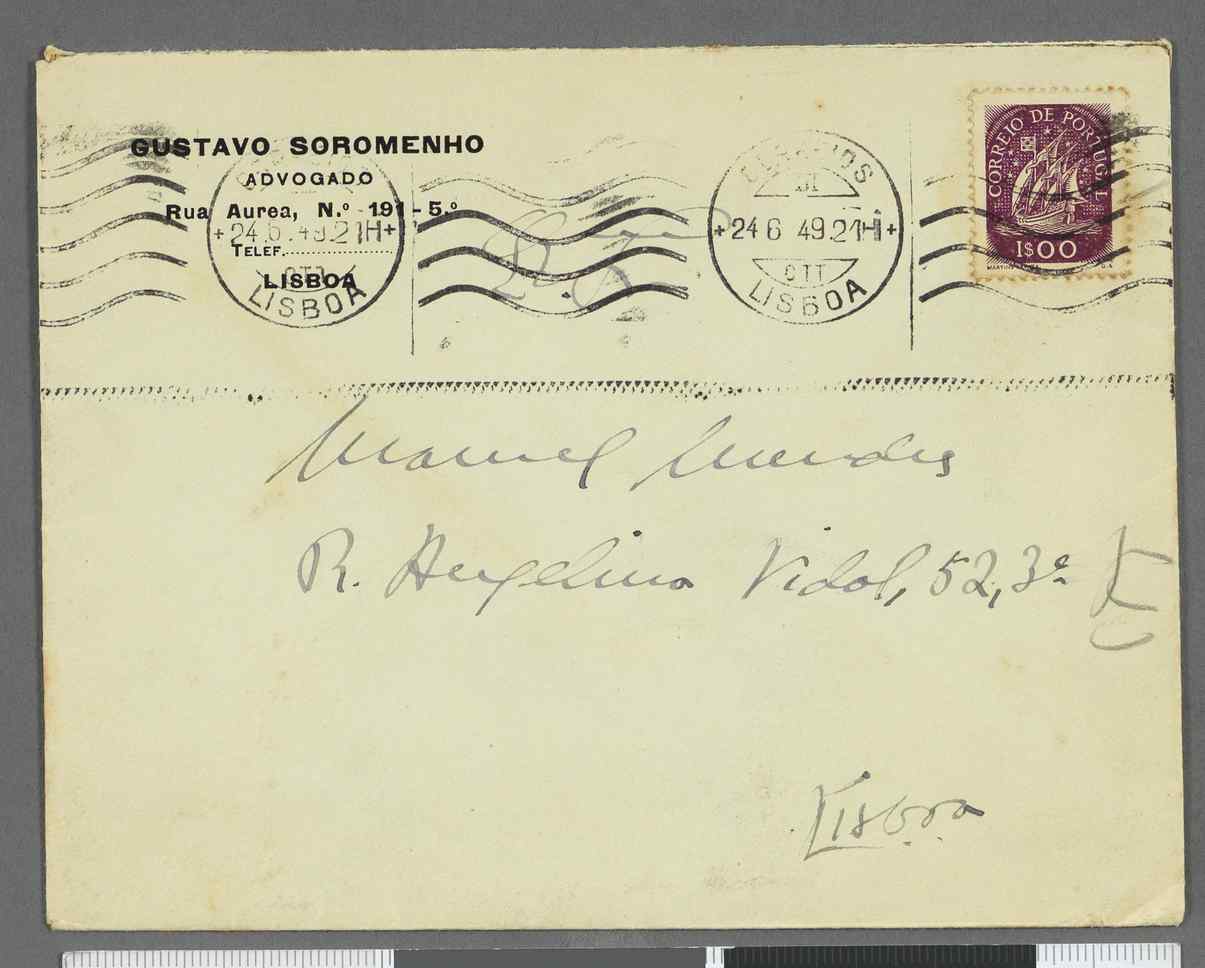 GUSTAVO SOROMENHO
ADVOGADO
Rua Aurea, N.º 191 - 5.º
TELEF.
LISBOA
+24.6.49.21H+
CTT
LISBOA
CORREIOS
+24 6 49.21H+
CTT
LISBOA
CORREIO DE PORTUGAL
1$00
Manuel Mendes
R. Angelina Vidal, 52, 3º
Lisboa